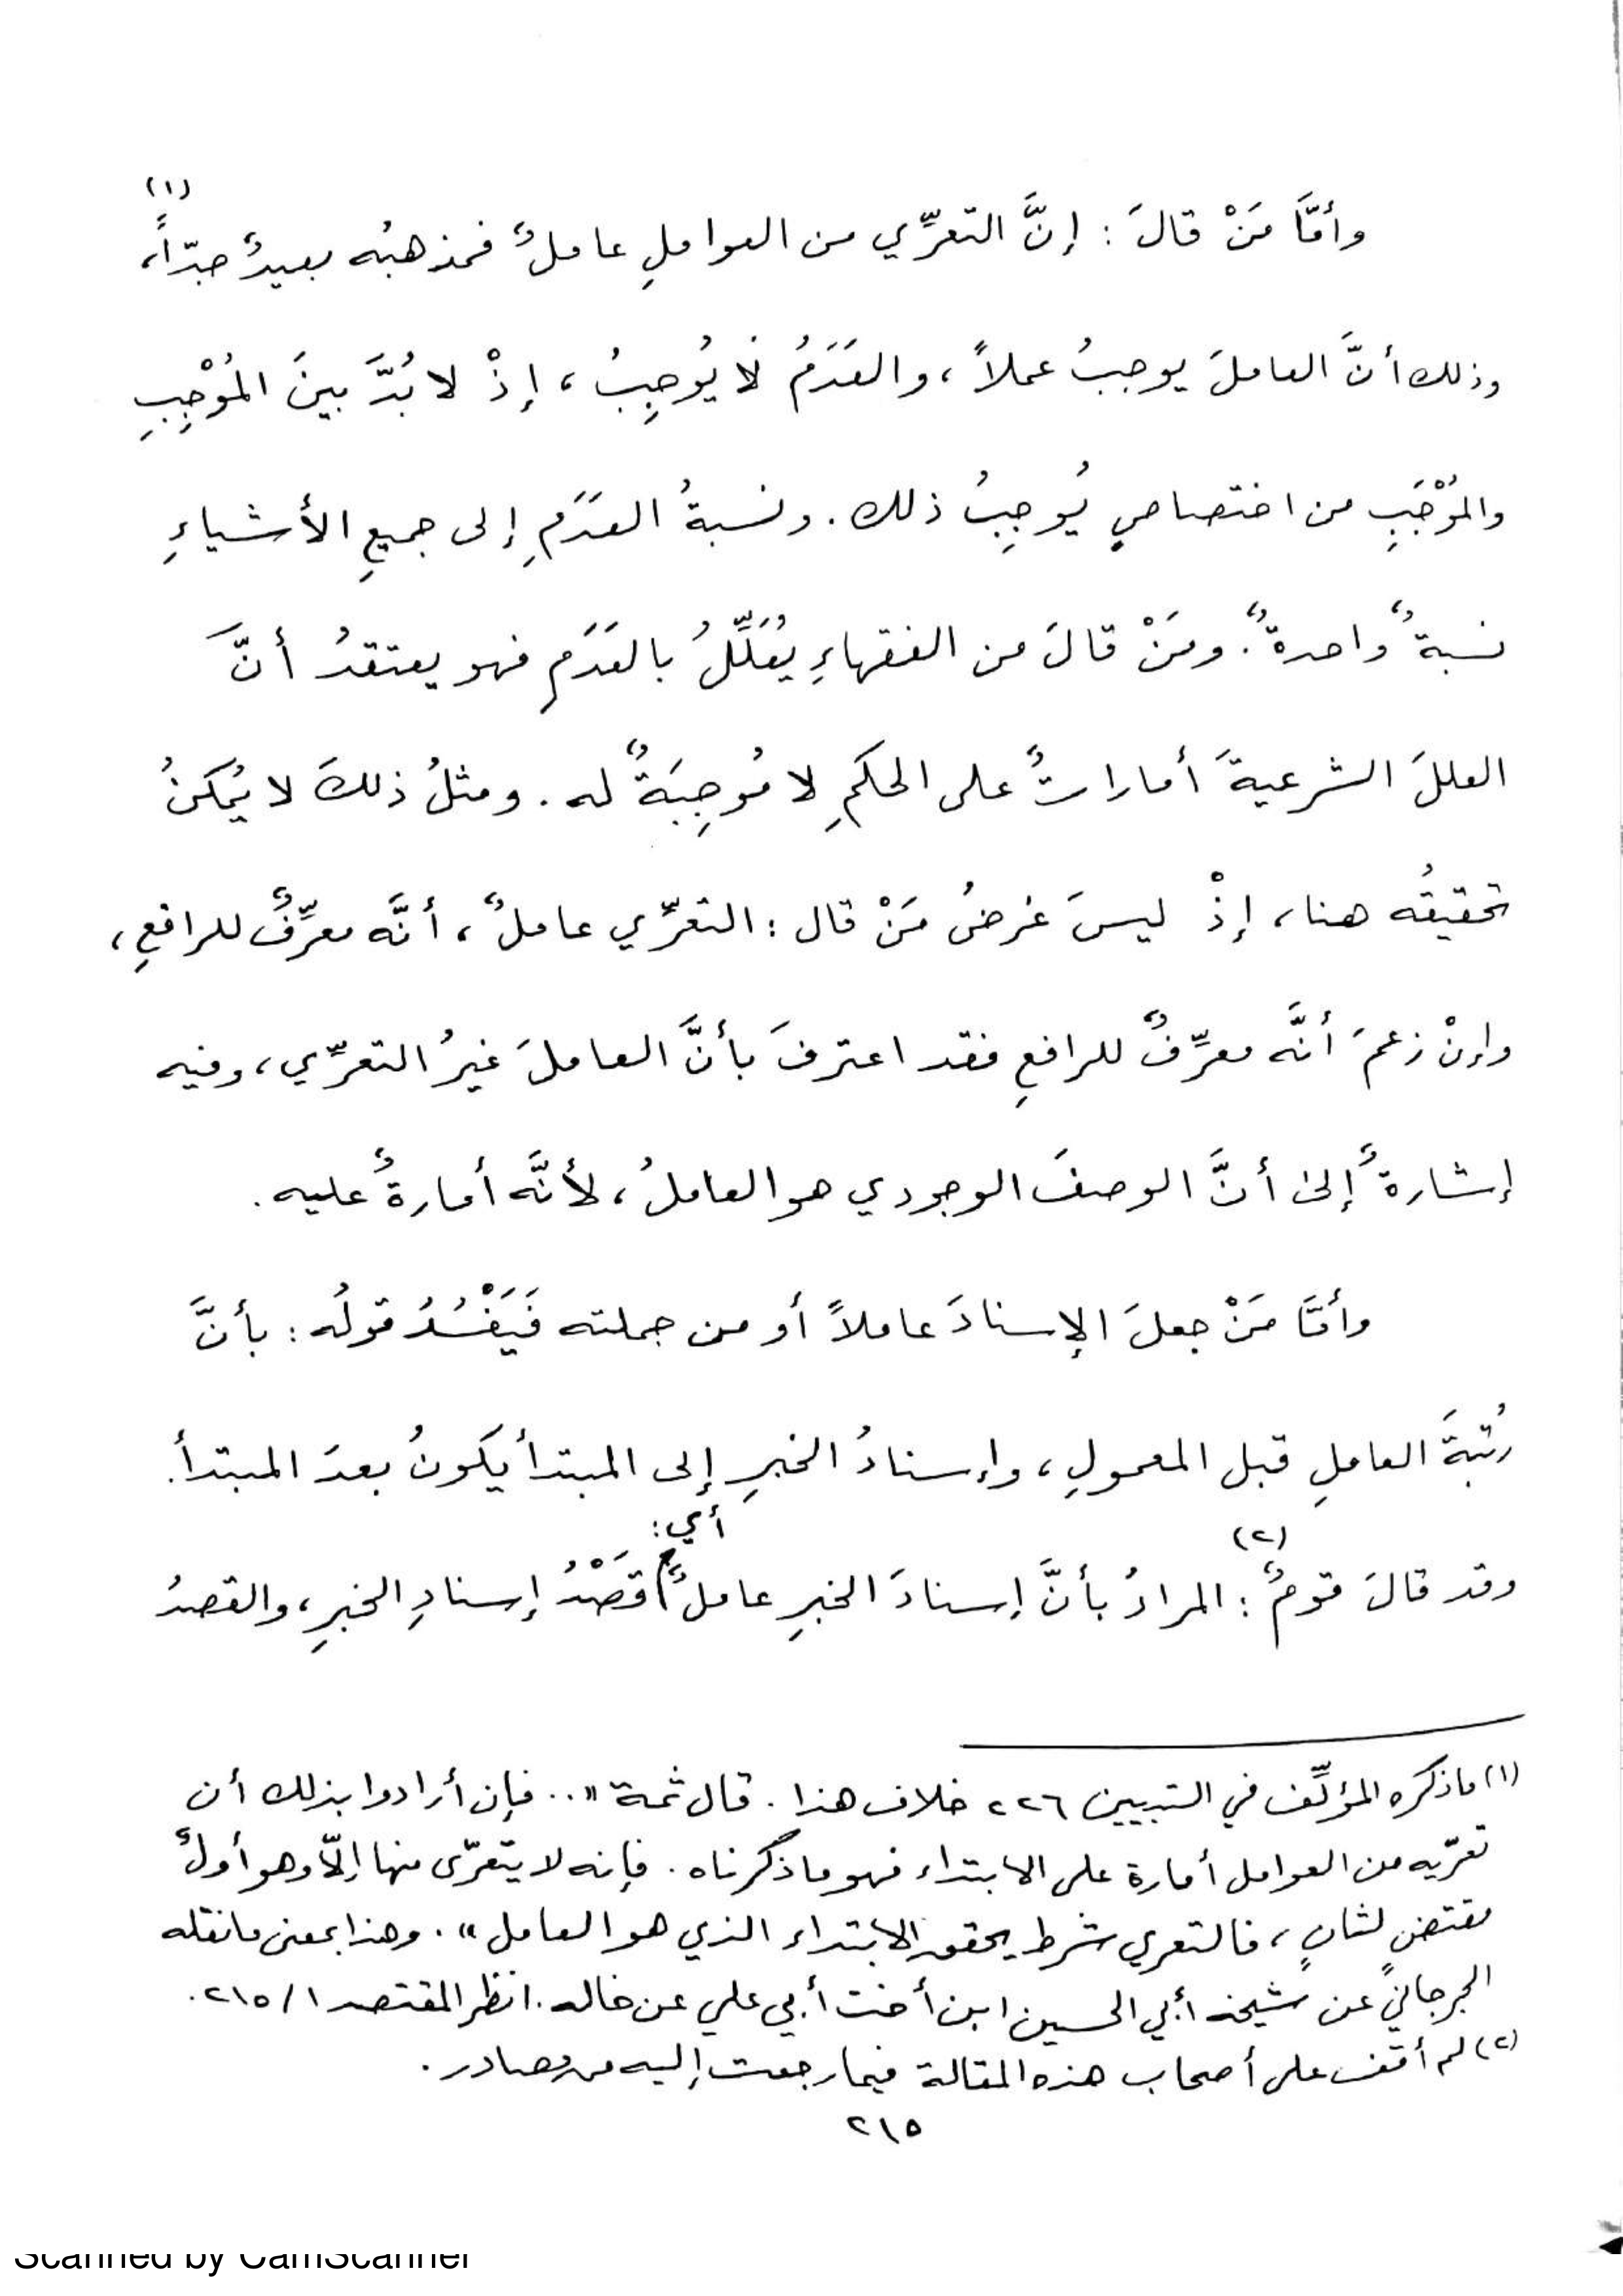 وأمَّا مَنْ قالَ : إنَّ التعرِّي من العواملِ عاملٌ فمذهبُه بعيدٌ جدّاً، (١)
وذلك أنَّ العاملَ يوجبُ عملاً ، والعَدَمُ لَا يُوجِبُ ، إذْ لا بُدَّ بينَ المُوْجِبِ
والمُوْجَبِ من اختصاصٍ يُوجِبُ ذلك . ونسبةُ العَدَمِ إلى جميعِ الأشياءِ
نسبةٌ واحدةٌ . ومَنْ قالَ من الفقهاءِ يُعَلِّلُ بالعَدَمِ فهو يعتقدُ أنَّ
العللَ الشرعيةَ أماراتٌ على الحكمِ لا مُوجِبَةٌ له . ومثلُ ذلكَ لا يُمكنُ
تحقيقُه هنا ، إذْ ليسَ غرضُ مَنْ قال : التعرِّي عاملٌ ، أنَّه معرِّفٌ للرافعِ ،
وإنْ زعمَ أنَّه معرِّفٌ للرافعِ فقد اعترفَ بأنَّ العاملَ غيرُ التعرِّي ، وفيه
إشارةٌ إلىٰ أنَّ الوصفَ الوجودي هو العاملُ ، لأنَّه أمارةٌ عليه .
وأمَّا مَنْ جعلَ الإسنادَ عاملاً أو من جملته فَيَفْسُدُ قولُه : بأنَّ
رُتبةَ العاملِ قبل المعمولِ ، وإسنادُ الخبرِ إلى المبتدأ يكونُ بعدَ المبتدأ .
وقد قالَ قومٌ (٢) : المرادُ بأنَّ إسنادَ الخبرِ عاملٌ أي : قَصْدُ إسنادِ الخبرِ ، والقصدُ
(١) ما ذكره المؤلِّف في التبيين ٢٢٦ خلاف هذا . قال ثمة « .. فإن أرادوا بذلك أن
تعرّيه من العوامل أمارة على الابتداء فهو ما ذكرناه . فإنه لا يتعرّى منها إلّا وهو أولٌ
مقتضٍ لثانٍ ، فالتعري شرط يحقق الابتداء الذي هو العامل » . وهذا بمعنى ما نقله
الجرجاني عن شيخه أبي الحسين ابن أخت أبي علي عن خاله . انظر المقتصد ١ / ٢١٥ .
(٢) لم أقف على أصحاب هذه المقالة فيما رجعت إليه من مصادر .
٢١٥
Scanned by CamScanner